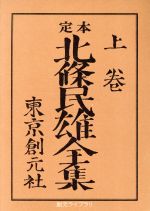 定本
上巻
北條民雄全集
東京創元社
創元ライブラリ